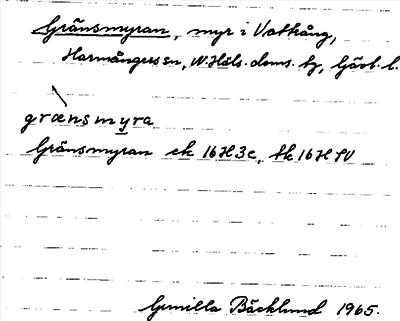 Gränsmyran, myr i Vattlång,
Harmångers sn, N. Häls. doms. tg, Gävl. l.
grænsmyra
Gränsmyran ek 16H3c, tk 16H SV
Gunilla Bäcklund 1965.